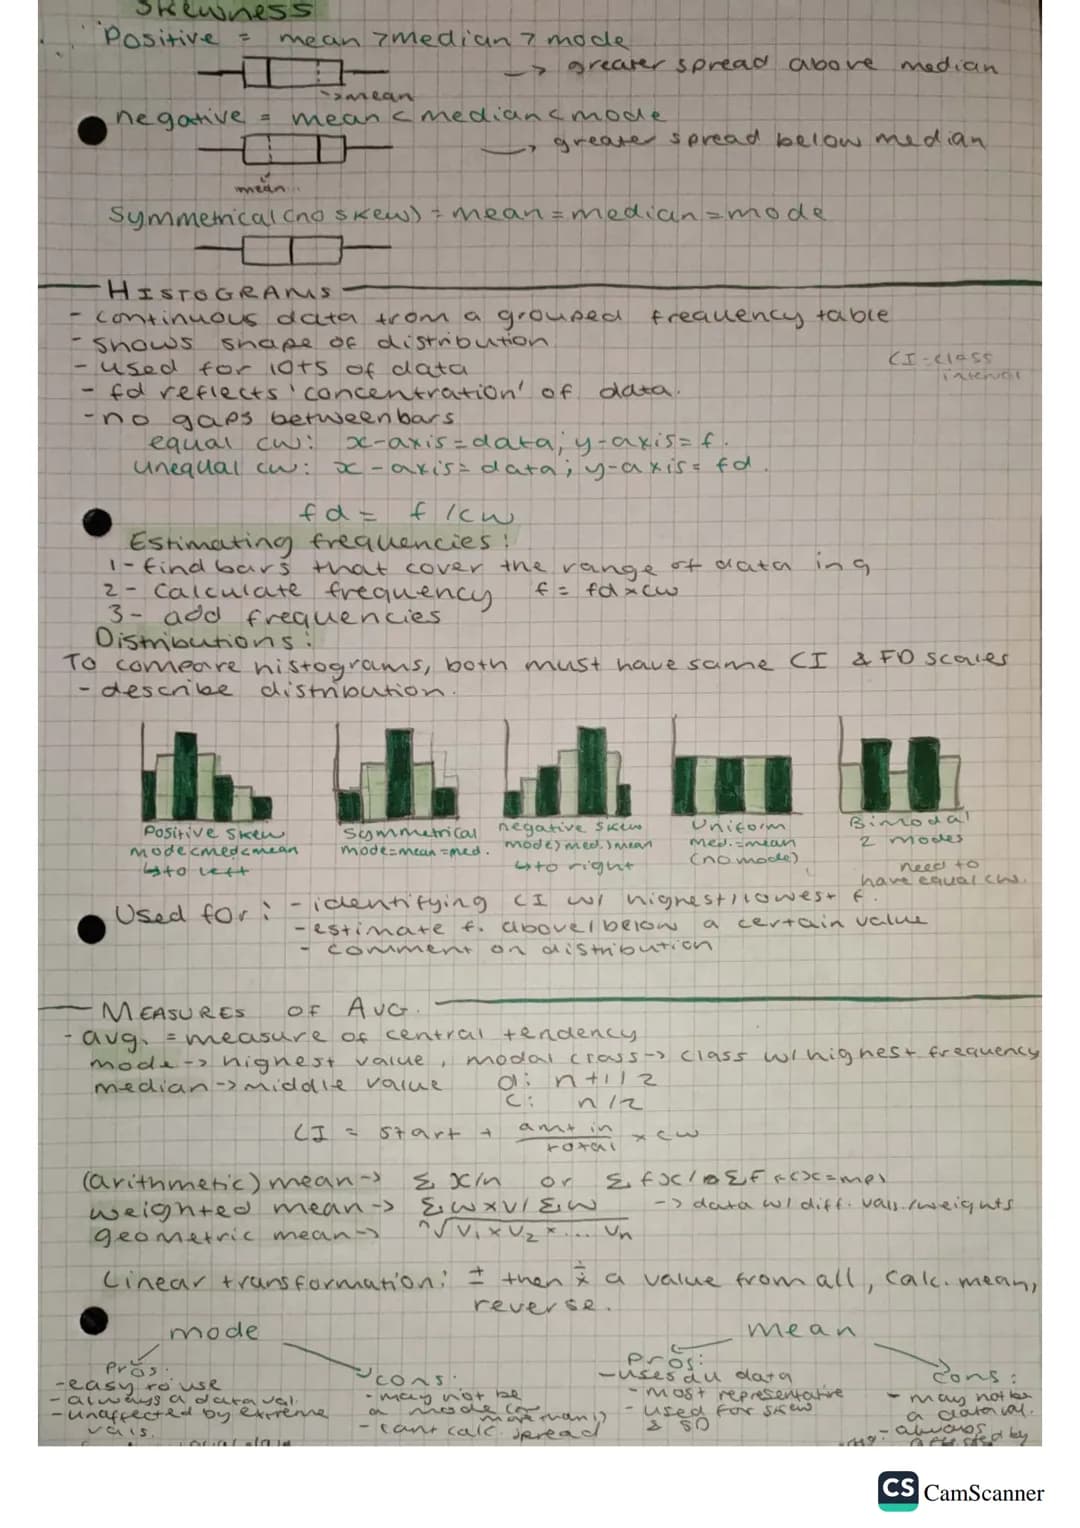 Skewness
Positive = mean > median > mode
-> greater spread above median
->mean
negative = mean < median < mode
-> greater spread below median
mean
Symmetrical (no skew) = mean = median = mode
HISTOGRAMS
- continuous data from a grouped frequency table
- shows shape of distribution
- used for lots of data
CI - class interval
- fd reflects 'concentration' of data.
- no gaps between bars
equal cw: x-axis = data; y-axis = f.
unequal cw: x-axis = data; y-axis = fd.
fd = f/cw
Estimating frequencies:
1- find bars that cover the range of data in q
2- Calculate frequency f = fd x cw
3- add frequencies
Distributions:
To compare histograms, both must have same CI & FD scales
- describe distribution.
Positive Skew
mode<med<mean
↳to left
Symmetrical
mode=mean=med.
negative skew
mode>med.>mean
↳to right
Uniform
med.=mean
(no mode)
Bimodal
2 modes
need to
have equal cws.
Used for: - identifying CI w/ highest/lowest f.
- estimate f. above/below a certain value
- comment on distribution
MEASURES OF AVG.
- avg. = measure of central tendency
mode -> highest value, modal class -> class w/ highest frequency
median -> middle value d: n+1/2
c: n/2
CI = start + amt in/total x cw
(arithmetic) mean -> Σx/n or Σfx/Σf (x=mp)
weighted mean -> Σwxv/Σw -> data w/ diff. vals./weights
geometric mean -> ⁿ√V₁ x V₂ x ... Vn
Linear transformation: ± then ÷/x a value from all, calc. mean,
reverse.
mode
Pros:
- easy to use
- always a data val.
- unaffected by extreme
vals.
cons:
- may not be
a mode (or
more than 1)
- cant calc. spread
mean
Pros:
- uses all data
- most representative
- used for skew
& SD
Cons:
- may not be
a data val.
- always
affected by
CS CamScanner